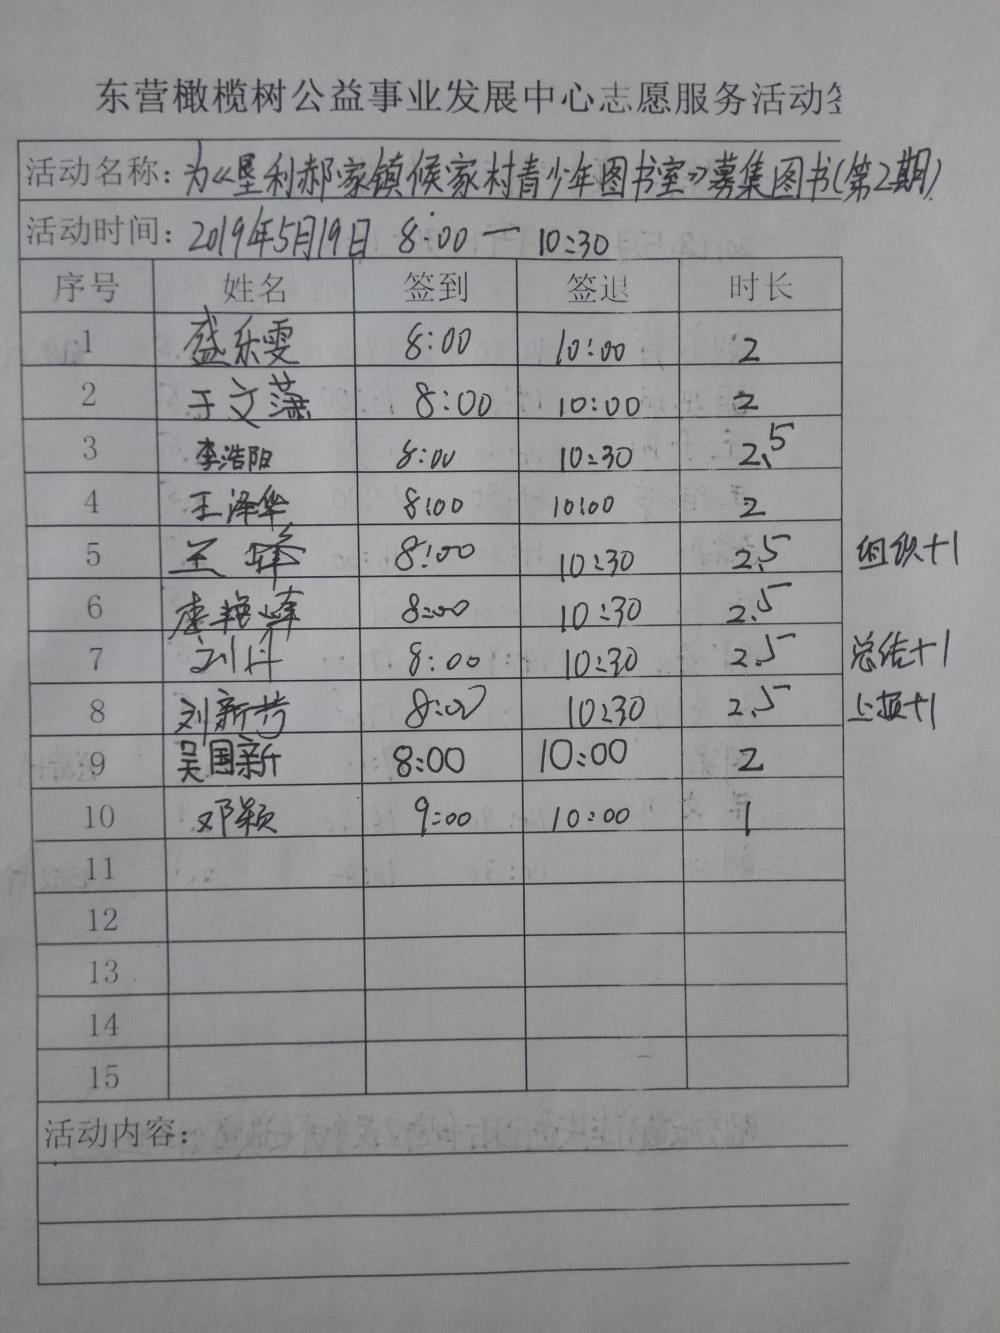 东营橄榄树公益事业发展中心志愿服务活动
活动名称：为《垦利郝家镇候家村青少年图书室》募集图书(第2期)
活动时间：2019年5月19日 8:00—10:30
序号 姓名 签到 签退 时长
1 盛乐雯 8:00 10:00 2
2 于文藻 8:00 10:00 2
3 李浩阳 8:00 10:30 2.5
4 王泽华 8:00 10:00 2
5 王 8:00 10:30 2.5 组织+1
6 艳峰 8:00 10:30 2.5
7 刘丹 8:00 10:30 2.5 总结+1
8 刘新芳 8:00 10:30 2.5 上报+1
9 吴国新 8:00 10:00 2
10 邓颖 9:00 10:00 1
11
12
13
14
15
活动内容：